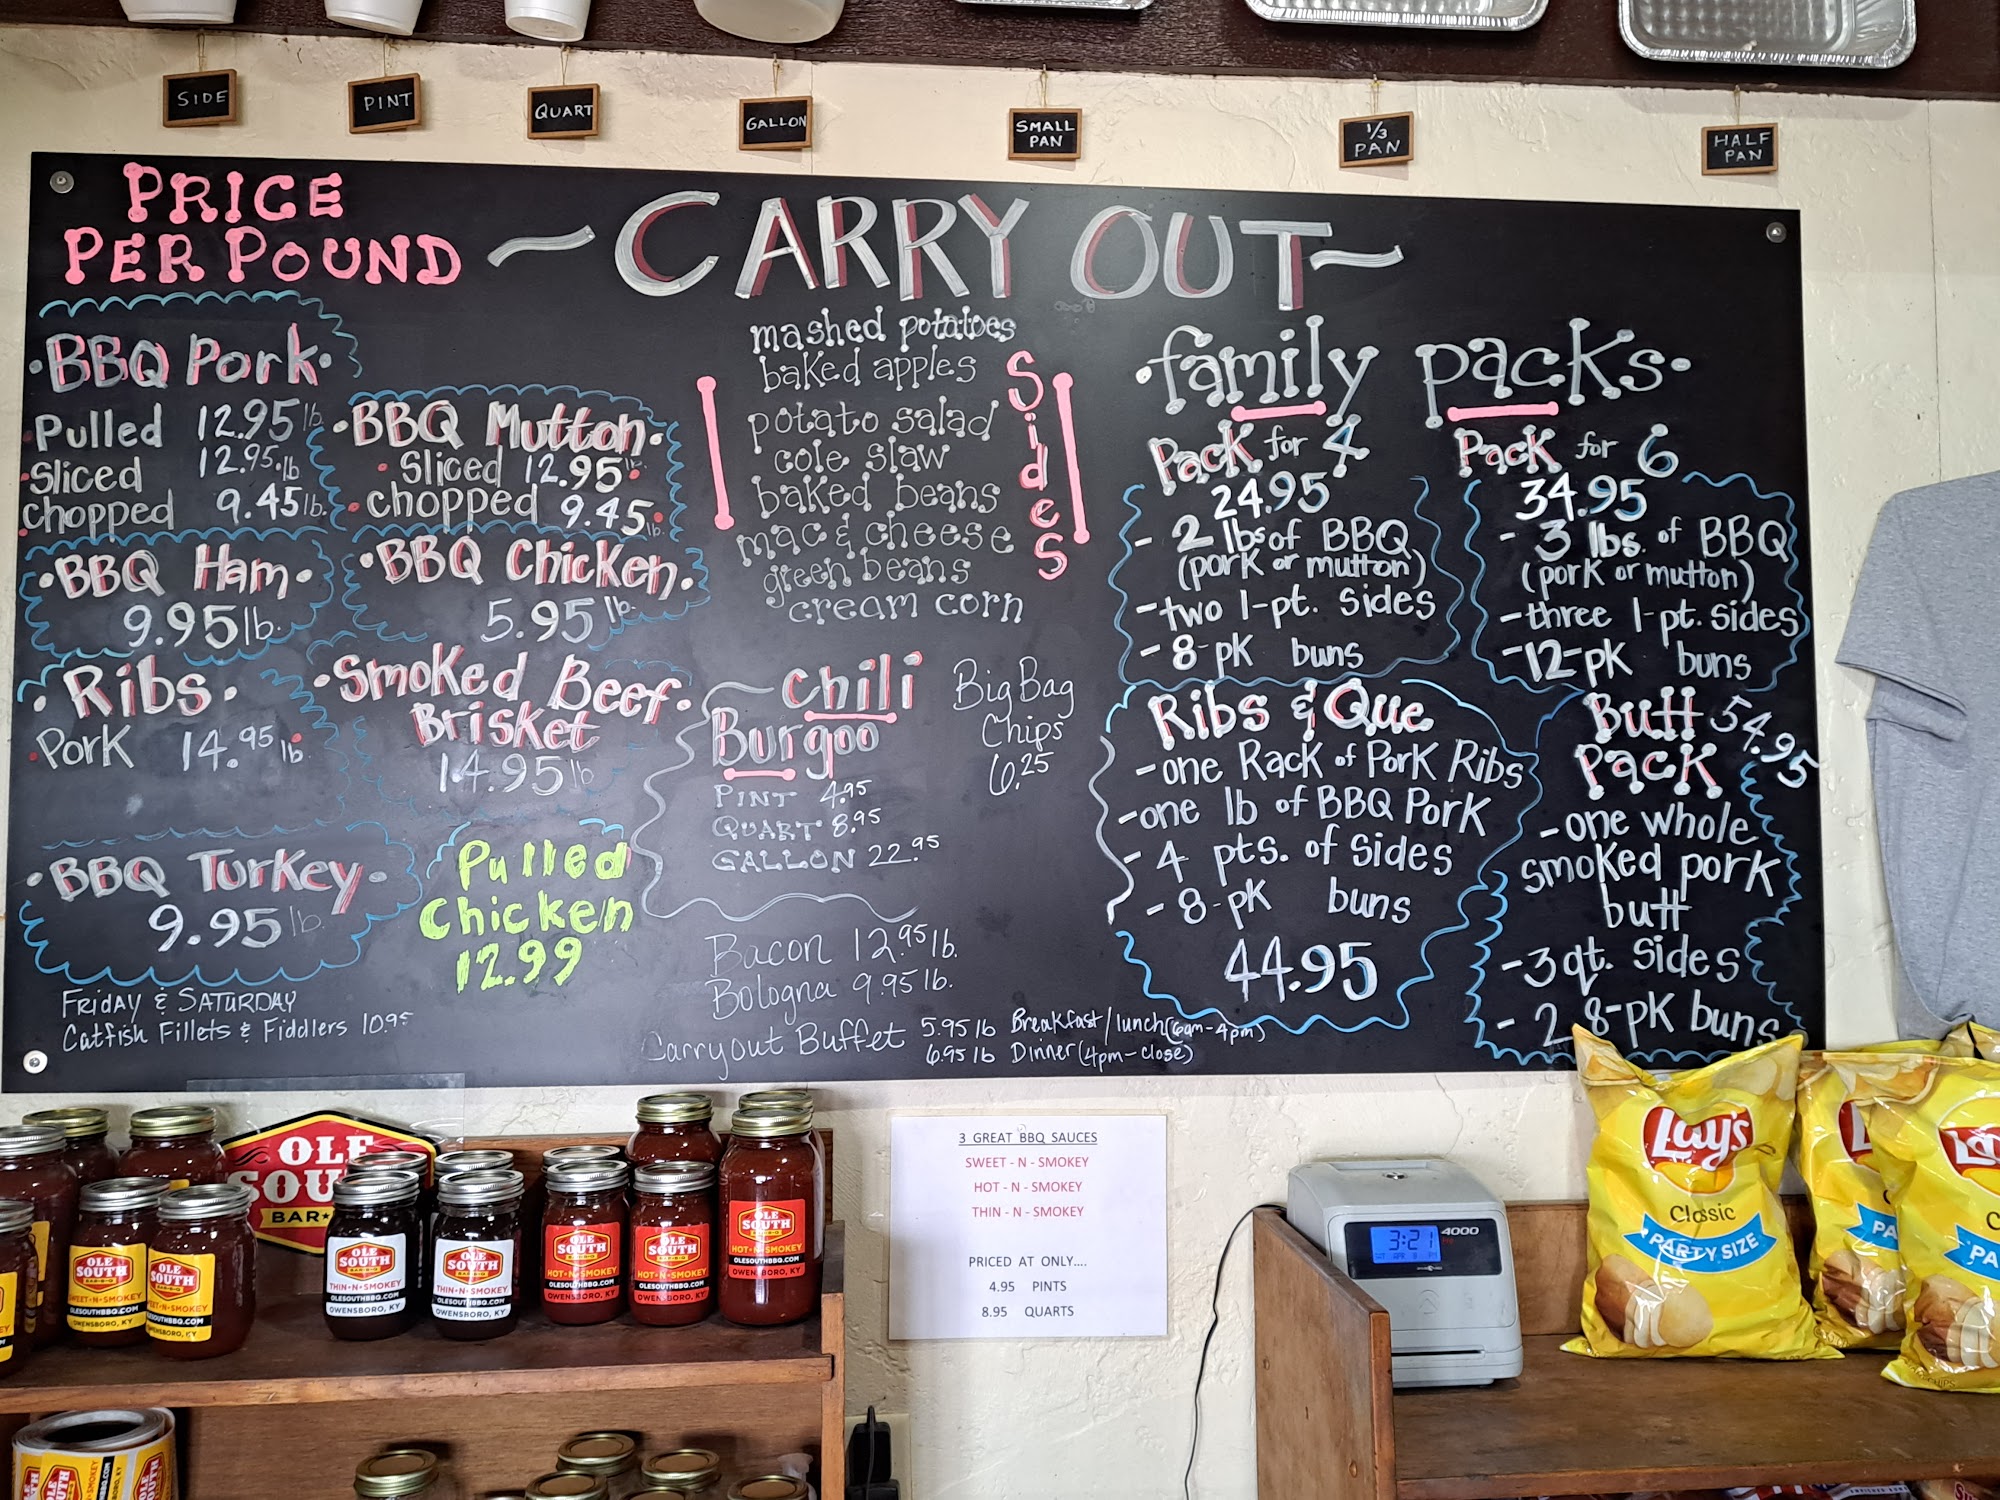 SIDE
PINT
QUART
GALLON
SMALL
PAN
1/3
PAN
HALF
PAN
PRICE
PER POUND
~CARRY OUT~
·BBQ Pork·
·Pulled 12.95 lb
·Sliced 12.95 lb
chopped 9.45 lb.
·BBQ Mutton·
·Sliced 12.95 lb.
·chopped 9.45 lb.
·BBQ Ham·
9.95 lb.
·BBQ Chicken·
5.95 lb.
·Ribs·
·Pork 14.95 lb.
·Smoked Beef·
Brisket
14.95 lb
·BBQ Turkey·
9.95 lb.
Pulled
Chicken
12.99
FRIDAY & SATURDAY
Catfish Fillets & Fiddlers 10.95
Sides
mashed potatoes
baked apples
potato salad
cole slaw
baked beans
mac & cheese
green beans
cream corn
Chili
Burgoo
PINT 4.95
QUART 8.95
GALLON 22.95
Big Bag
Chips
6.25
Bacon 12.95 lb.
Bologna 9.95 lb.
Carryout Buffet 5.95 lb Breakfast/lunch (6am-4pm)
6.95 lb Dinner (4pm-close)
·family packs·
Pack for 4
24.95
- 2 lbs of BBQ
(pork or mutton)
-two 1-pt. sides
- 8-pk buns
Pack for 6
34.95
- 3 lbs. of BBQ
(pork or mutton)
-three 1-pt. sides
-12-pk buns
Ribs & Que
-one Rack of Pork Ribs
-one lb of BBQ Pork
- 4 pts. of Sides
- 8-pk buns
44.95
Butt 54.95
Pack
-one whole
smoked pork
butt
-3 qt. sides
- 2 8-pk buns
3 GREAT BBQ SAUCES
SWEET - N - SMOKEY
HOT - N - SMOKEY
THIN - N - SMOKEY
PRICED AT ONLY....
4.95 PINTS
8.95 QUARTS
OLE
SOU
BAR
OLE
SOUTH
OLESOUTHBBQ.COM
OWENSBORO, KY
OLE
SOUTH
OWENSBORO, KY
OLE
SOUTH
THIN-N-SMOKEY
OLESOUTHBBQ.COM
OWENSBORO, KY
OLE
SOUTH
THIN-N-SMOKEY
OLESOUTHBBQ.COM
OWENSBORO, KY
OLE
SOUTH
HOT-N-SMOKEY
OLESOUTHBBQ.COM
OWENSBORO, KY
OLE
SOUTH
HOT-N-SMOKEY
OLESOUTHBBQ.COM
OWENSBORO, KY
OLE
SOUTH
HOT-N-SMOKEY
OLESOUTHBBQ.COM
OWENSBORO, KY
3:21
4000
Lay's
Classic
PARTY SIZE